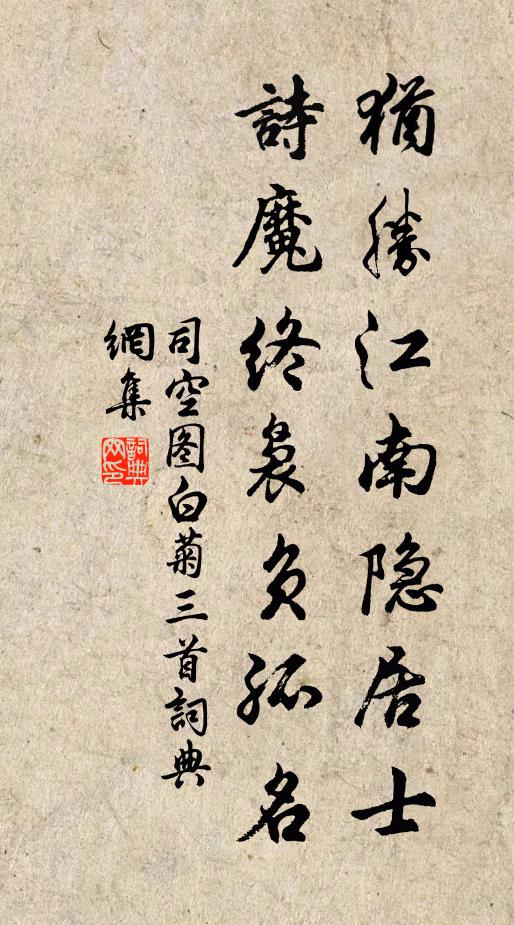 猶勝江南隐居士
詩魔終袅负孤名
司空图白菊三首詞典
網集
詞典网印